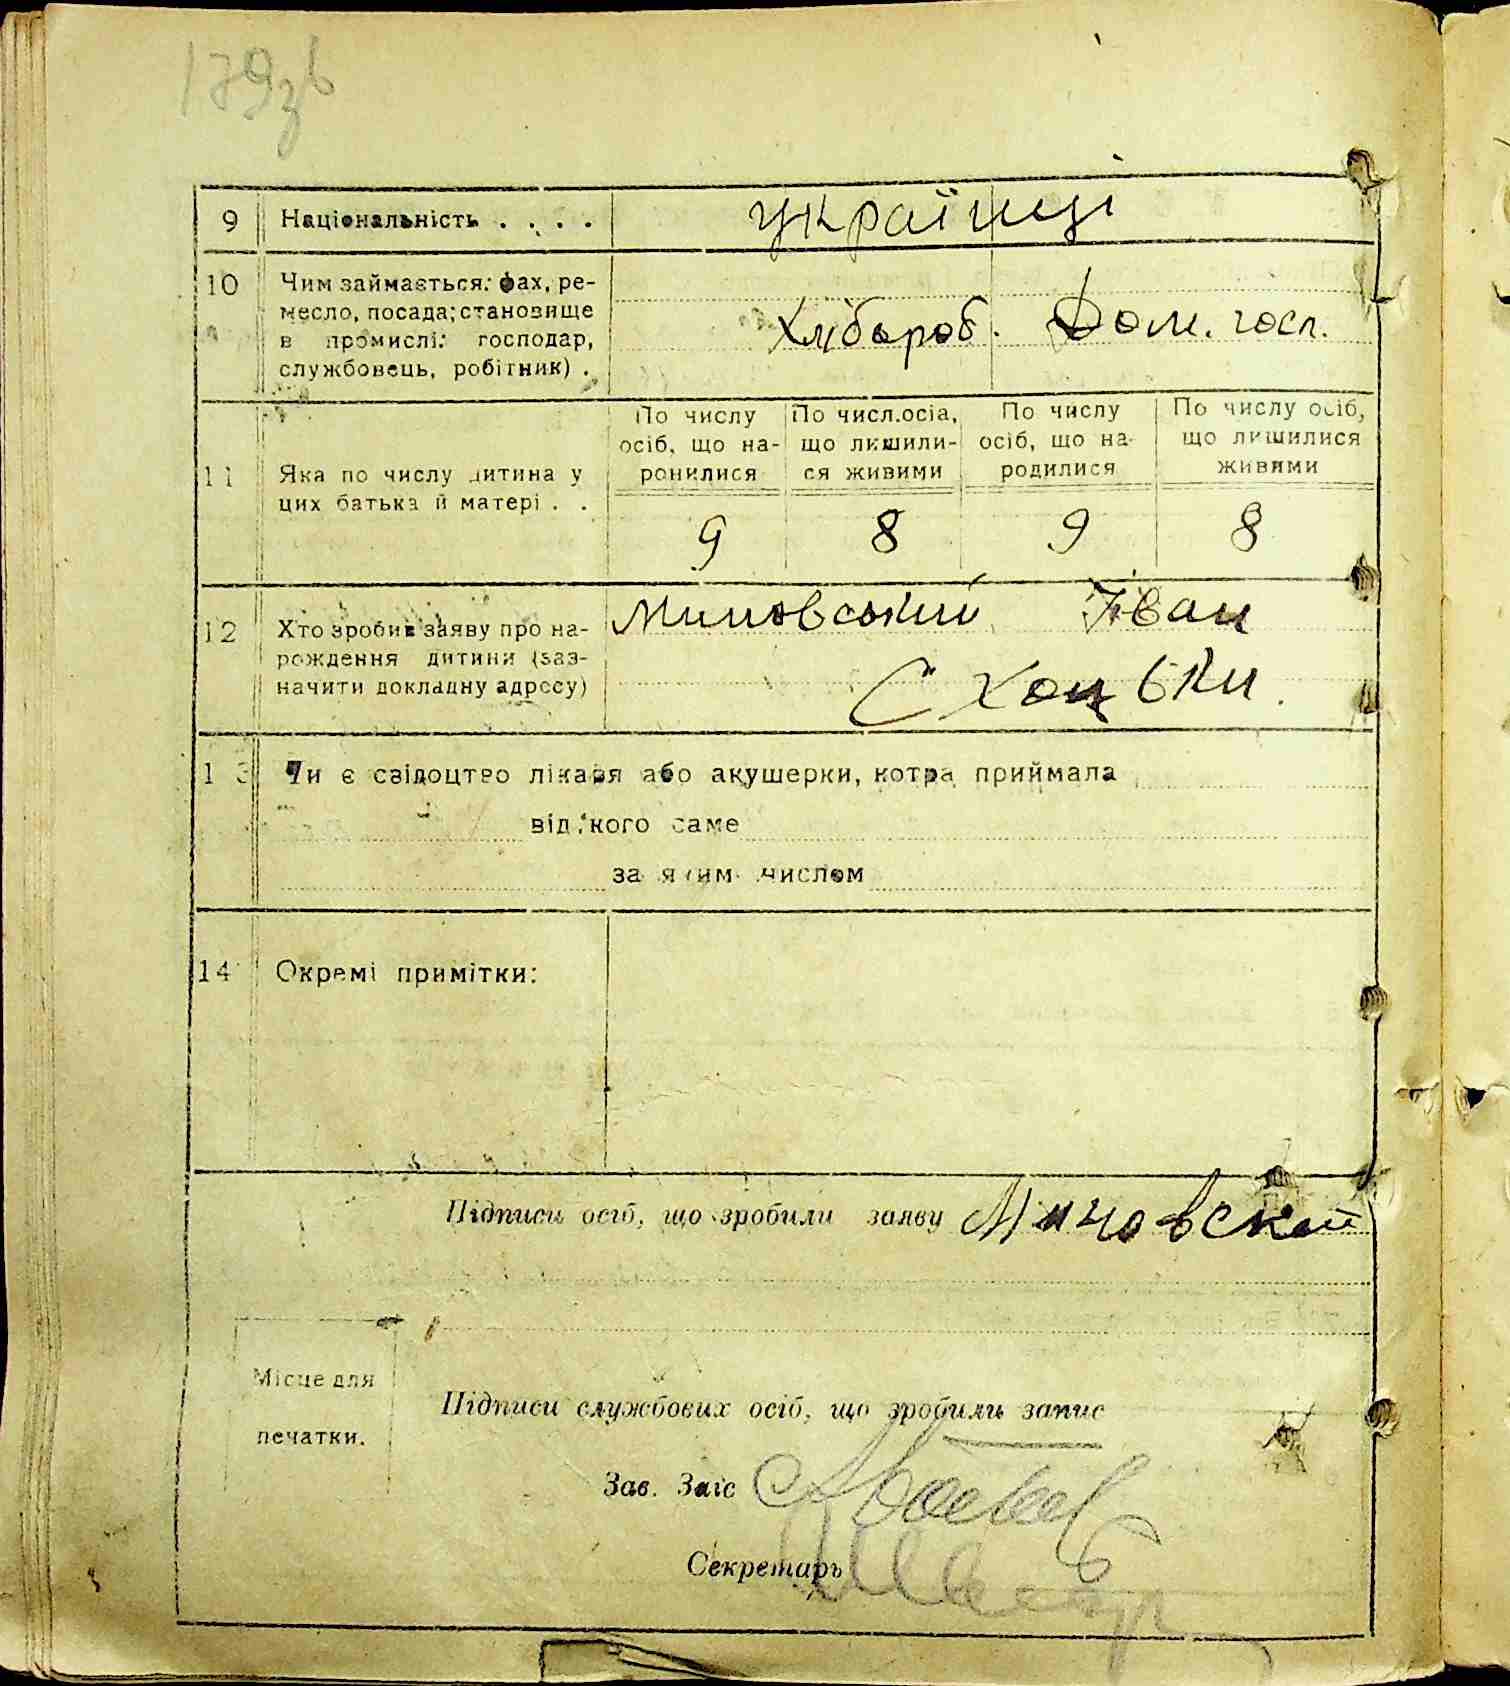 179зв
9 Національність . . . . українці
10 Чим займається: фах, ре-
месло, посада; становище
в промислі: господар,
службовець, робітник) .
Хлібороб. Дом. госп.
По числу По числ.осіа, По числу По числу осіб,
осіб, що на- що лишили- осіб, що на- що лишилися
ронилися ся живими родилися живими
11 Яка по числу дитина у
цих батька й матері . .
9 8 9 8
12 Хто зробив заяву про на-
рождення дитини (заз-
начити докладну адресу)
Іван
С Хоцьки.
13 Чи є свідоцтво лікаря або акушерки, котра приймала
від кого саме
за яким числом
14 Окремі примітки:
Підписи осіб, що зробили заяву
Місце для
печатки.
Підписи службових осіб, що зробили запис
Зав. Загс
Секретарь